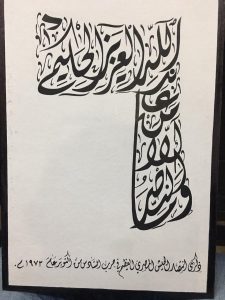 وما النصر إلا من عند الله العزيز الحكيم
ذكرى انتصار الجيش المصري العظيم في حرب السادس من أكتوبر عام ١٩٧٣م.